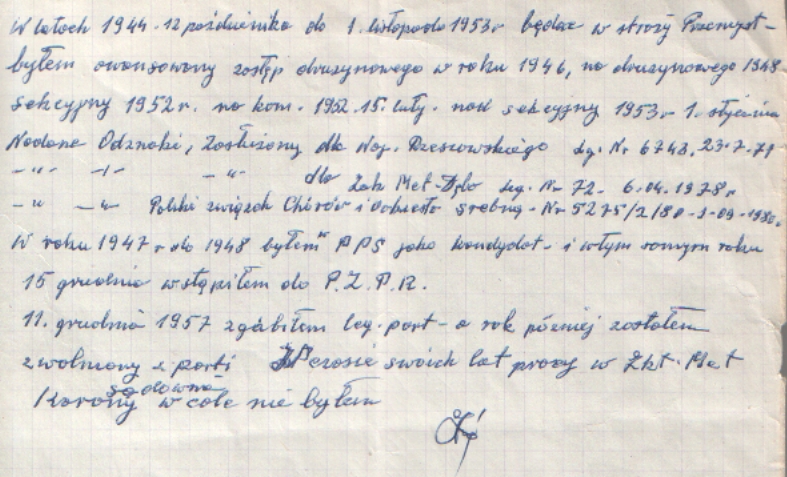 W latach 1944 - 12 października do 1. listopada 1953 r będąc w straży Przemysł -
byłem awansowany zostęp drużynowego w roku 1946, na drużynowego 1948
sekcyjny 1952 r. na kom. 1952. 15. luty. sekcyjny 1953 r - 1. stycznia
Nadane Odznaki, Zasłużony dla Woj. Rzeszowskiego Lg. Nr 6748, 23.7.71
- " - - " - - " - dla Zak Met - Dbo Leg. Nr 72. 6.04.1978 r
- " - " - Polski związek Chórów i Orkiestr srebrna - Nr 5275/2/80 - 1-09-1980 r
W roku 1947 r do 1948 byłem w PPS jako kandydat - i w tym samym roku
15 grudnia wstąpiłem do P.Z.P.R.
11. grudnia 1957 zgubiłem leg. part - a rok później zostałem
zwolniony z parti W czasie swoich lat pracy w Zkł. Met
Karany sądownie w cale nie byłem